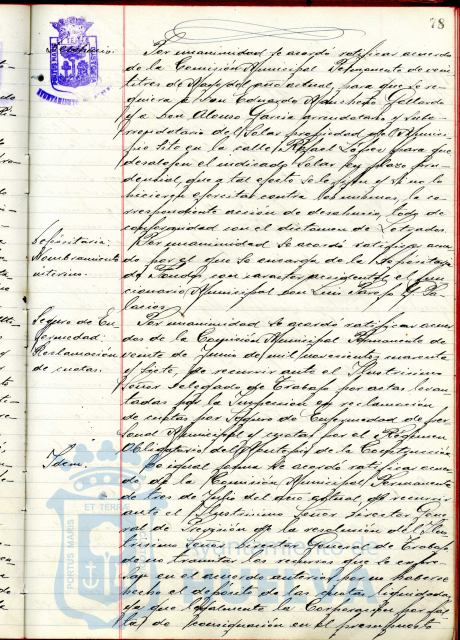 78
Por unanimidad se acordó ratificar acuerdo
de la Comisión Municipal Permanente de vein
titres de Mayo del año actual, para que se re
quiera a Don Eduardo Mancheño Gallardo
y a Don Alonso García arrendatario y sub
propietario del Solar propiedad del Munici
pio sito en la calle Rafael López para que
desalojen el indicado Solar en plazo pru
dencial, que a tal efecto se le fije y si no lo
hicieren ejercitar contra los mismos la co
rrespondiente acción de desahucio, todo de
conformidad con el dictamen de Letrados.
Depositaria.
Nombramiento
interino.
Por unanimidad se acordó ratificar acuer
do por el que se encarga de la Depositaria
de Fondos con carácter accidental el fun
cionario Municipal Don Luis
Seguro de En
fermedad.
Reclamación
de cuotas.
Por unanimidad se acordó ratificar acuer
dos de la Comisión Municipal Permanente de
veinte de Junio de mil novecientos cuarenta
y siete, de recurrir ante el Ilustrísimo
Señor Delegado de Trabajo por actas levan
tadas por la Inspección en reclamación
de cuotas por Seguro de Enfermedad de per
sonal Municipal y cuotas por el Régimen
Obligatorio del Montepío de la Construcción
Idem.
De igual forma se acordó ratificar acuer
do de la Comisión Municipal Permanente
de tres de Julio del año actual, de recurrir
ante el Ilustrísimo Señor Director Gene
ral de Previsión de la resolución del Ilus
trísimo Señor Delegado de Trabajo
de no tramitar los recursos que se expre
san en el acuerdo anterior por no haberse
hecho el depósito de las cuotas liquidadas
ya que legalmente la Corporación por fal
ta de consignación en el presupuesto
PORTUS MARIS ET TERRAE
Ayuntamiento de
HUELVA